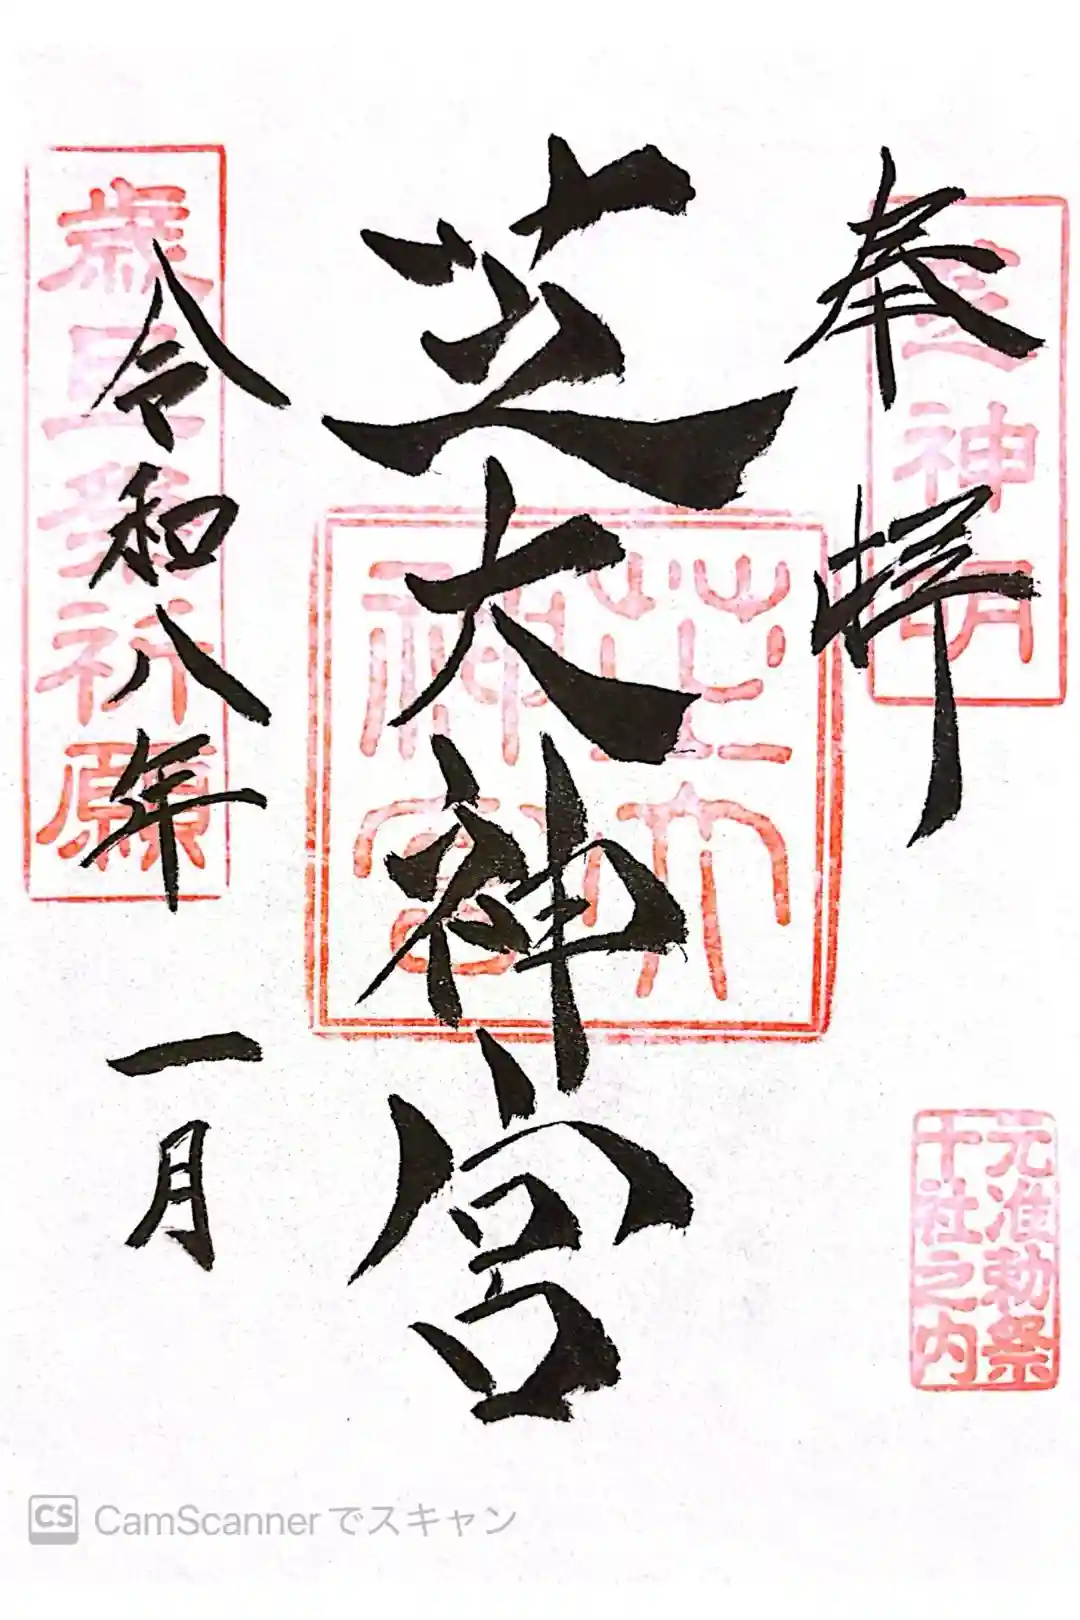 奉拝
芝神明
元准勅祭
十社之内
芝大神宮
芝大
神宮
令和八年一月
CamScannerでスキャン